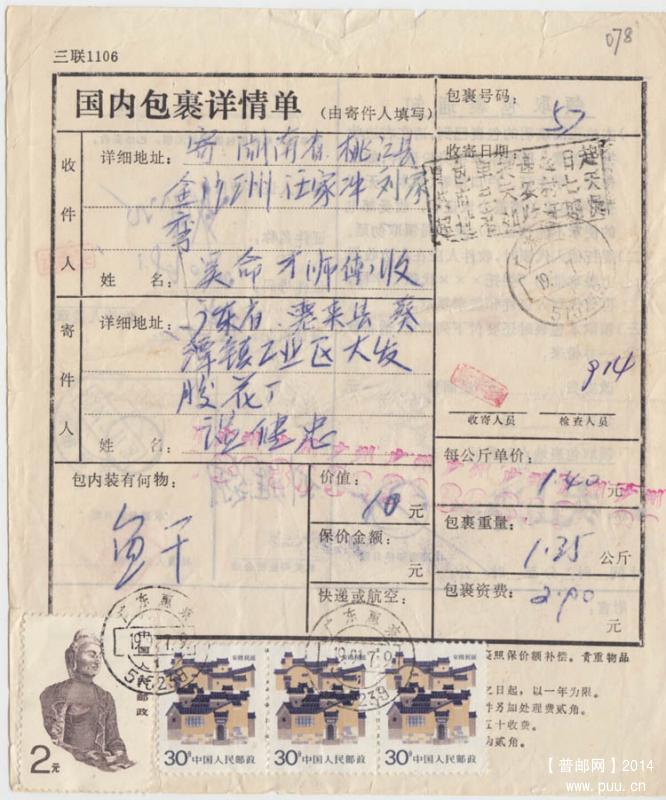 078
三联1106
国内包裹详情单 (由寄件人填写)
包裹号码:
57
收件人
详细地址: 寄 湖南省 桃江县
刘家
湾
姓 名: 莫命才师傅 收
收寄日期:
寄件人
详细地址: 广东省 惠来县 葵
潭镇工业区大发
胶花厂
姓 名: 健忠
914
收寄人员
检查人员
每公斤单价:
1.40 元
包内装有何物:
鱼干
价值:
10 元
保价金额:
元
快递或航空:
包裹重量:
1.35 公斤
包裹资费:
2.90 元
照保价额补偿。贵重物品
之日起,以一年为限。
件另加处理费贰角。
五十收费。
为贰角。
广东惠来
515239
广东惠来
515239
2元
中国人民邮政
安徽民居
30分 中国人民邮政
安徽民居
30分 中国人民邮政
安徽民居
30分 中国人民邮政
【普邮网】2014
www.puu.cn